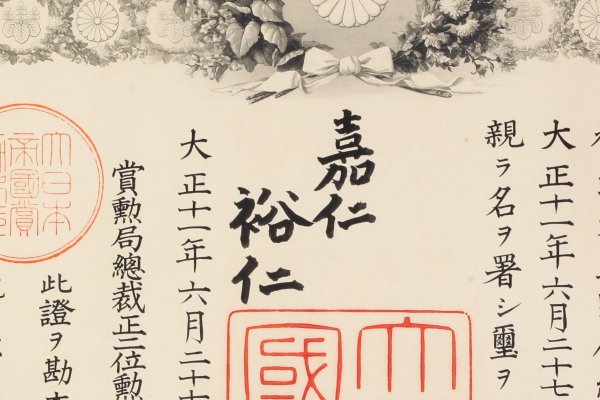 大正十一年六月二十七
親ラ名ヲ署シ璽ヲ
嘉仁
裕仁
大國
大正十一年六月二十七
賞勲局總裁正三位勲
此證ヲ勘
大日本
帝國賞